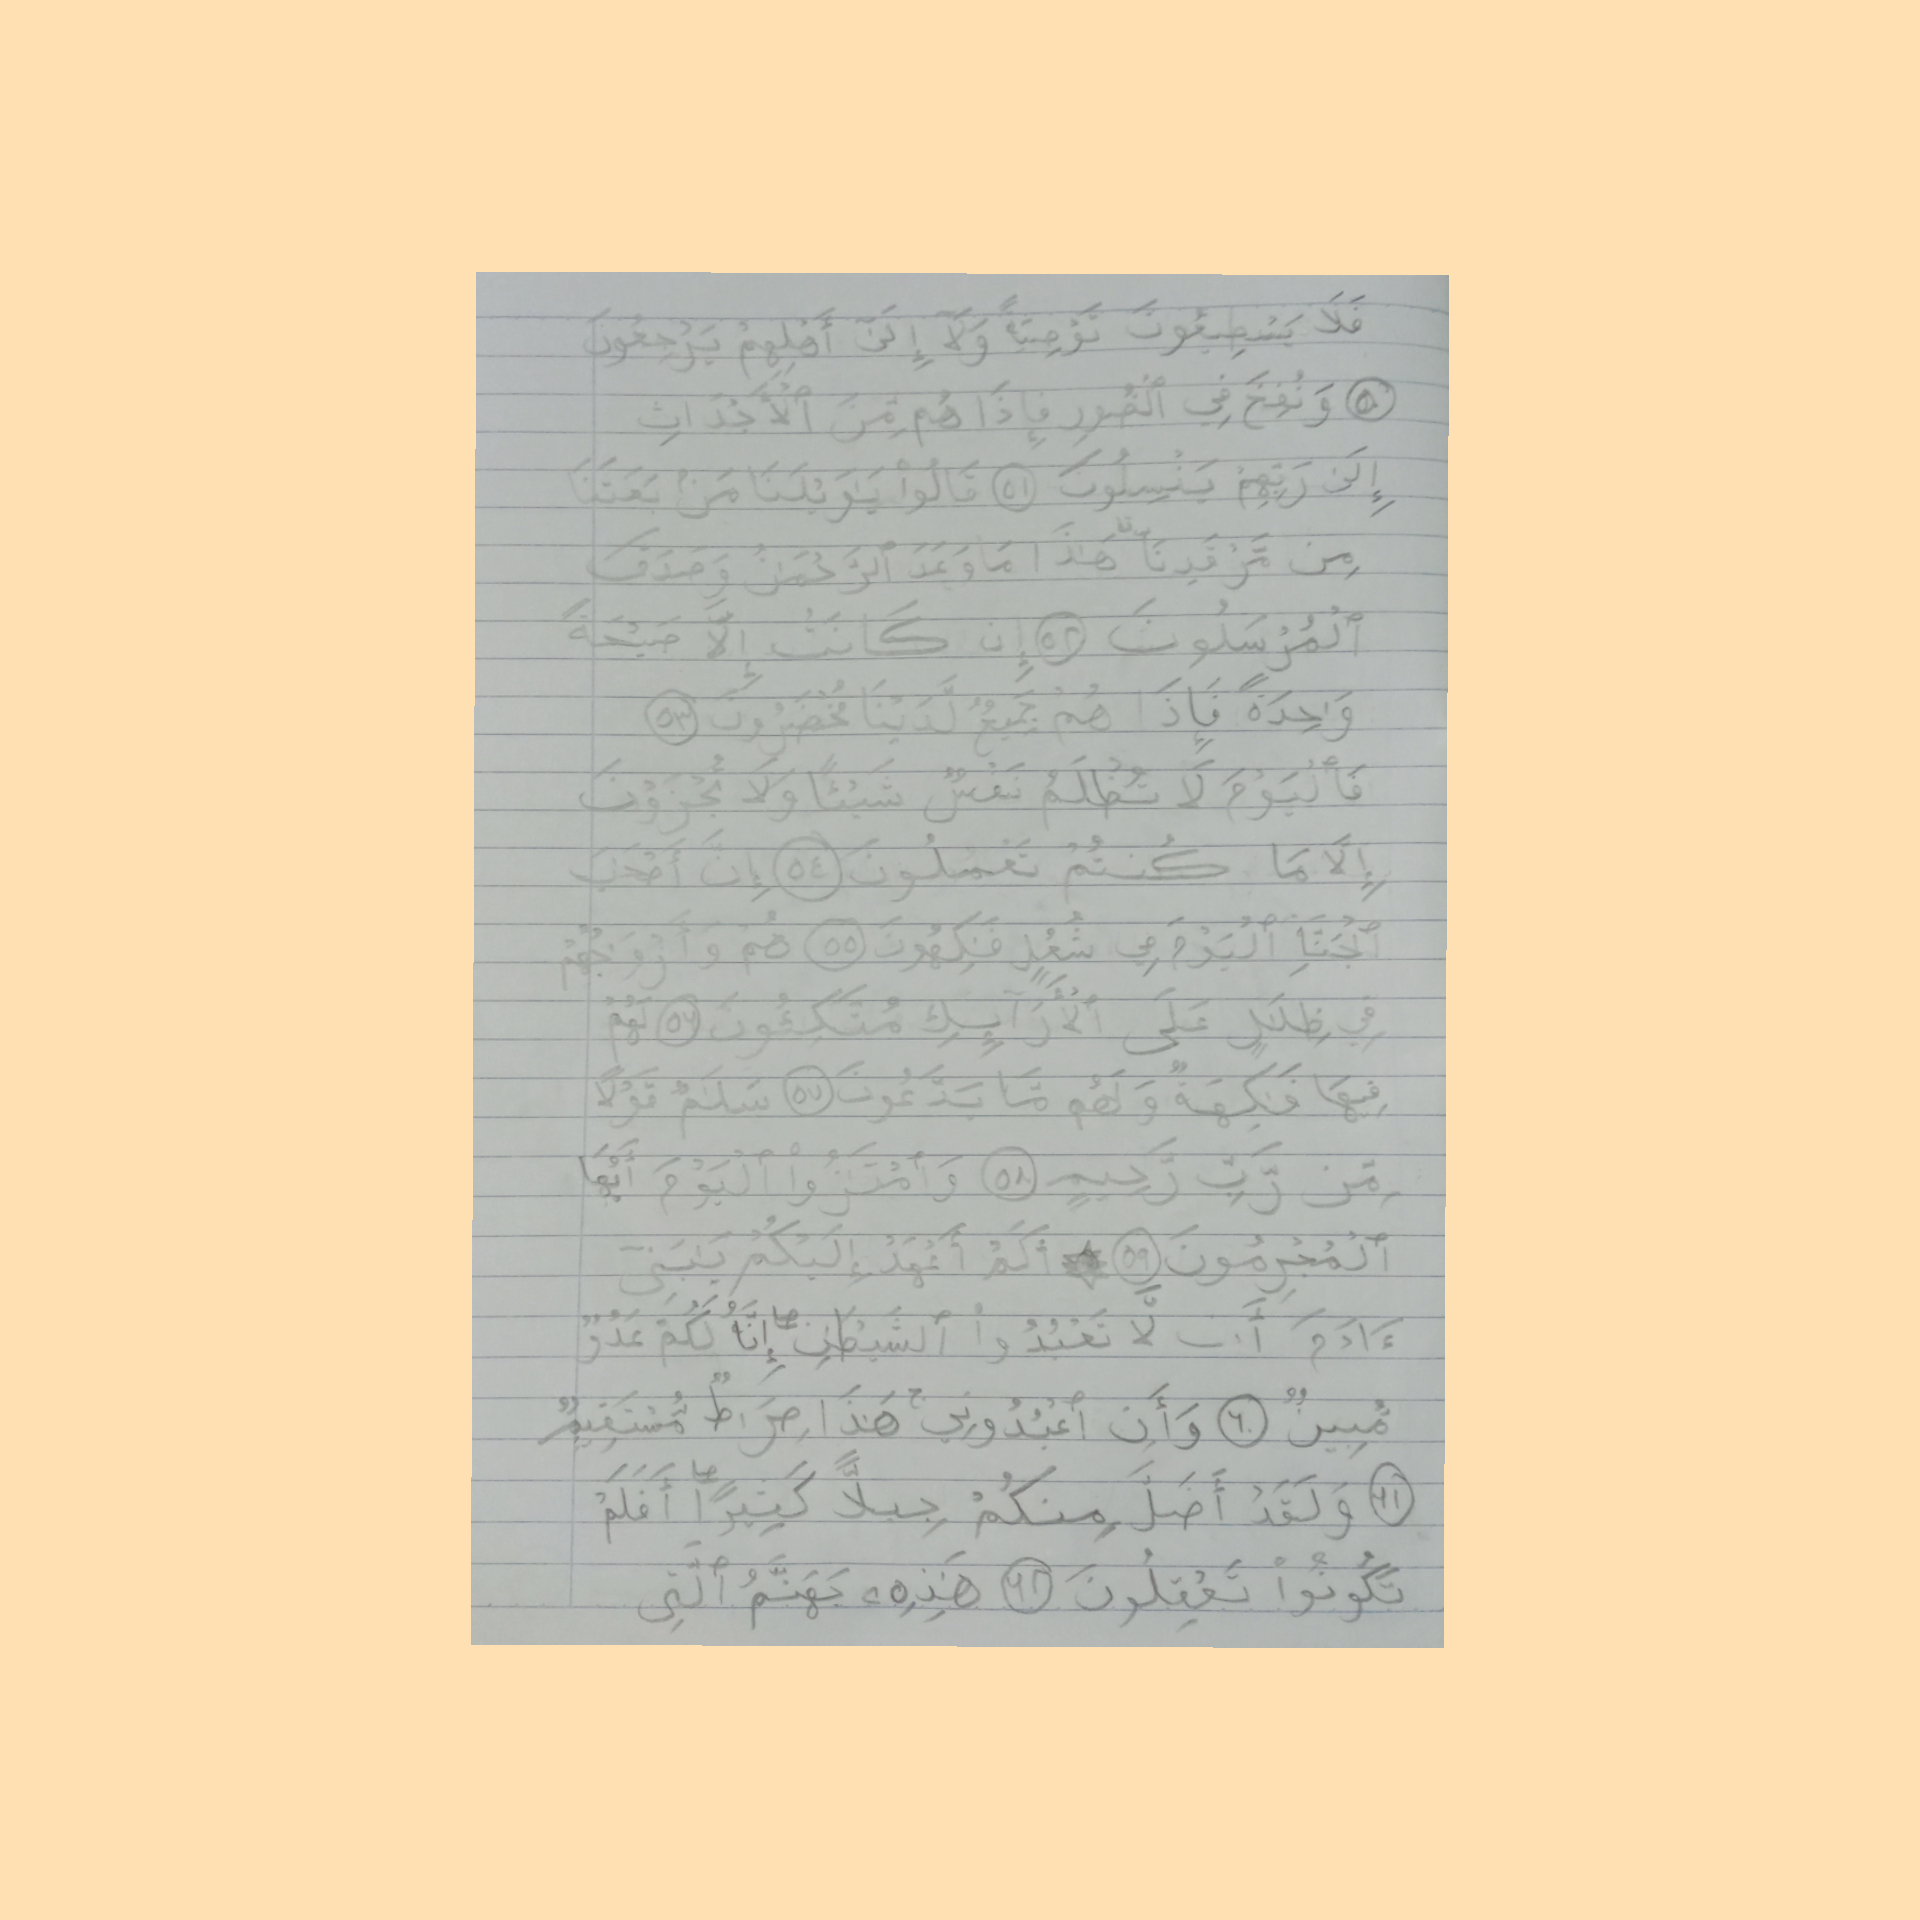 فَلَا يَسْتَطِيعُونَ تَوْصِيَةً وَلَآ إِلَىٰٓ أَهْلِهِمْ يَرْجِعُونَ
٥٠ وَنُفِخَ فِي ٱلصُّورِ فَإِذَا هُم مِّنَ ٱلْأَجْدَاثِ
إِلَىٰ رَبِّهِمْ يَنْسِلُونَ ٥١ قَالُوا۟ يَٰوَيْلَنَا مَنۢ بَعَثَنَا
مِن مَّرْقَدِنَا ۜ هَٰذَا مَا وَعَدَ ٱلرَّحْمَٰنُ وَصَدَقَ
ٱلْمُرْسَلُونَ ٥٢ إِن كَانَتْ إِلَّا صَيْحَةً
وَٰحِدَةً فَإِذَا هُمْ جَمِيعٌ لَّدَيْنَا مُحْضَرُونَ ٥٣
فَٱلْيَوْمَ لَا تُظْلَمُ نَفْسٌ شَيْـًٔا وَلَا تُجْزَوْنَ
إِلَّا مَا كُنتُمْ تَعْمَلُونَ ٥٤ إِنَّ أَصْحَٰبَ
ٱلْجَنَّةِ ٱلْيَوْمَ فِي شُغُلٍ فَٰكِهُونَ ٥٥ هُمْ وَأَزْوَٰجُهُمْ
فِي ظِلَٰلٍ عَلَى ٱلْأَرَآئِكِ مُتَّكِـُٔونَ ٥٦ لَهُمْ
فِيهَا فَٰكِهَةٌ وَلَهُم مَّا يَدَّعُونَ ٥٧ سَلَٰمٌ قَوْلًا
مِّن رَّبٍّ رَّحِيمٍ ٥٨ وَٱمْتَٰزُوا۟ ٱلْيَوْمَ أَيُّهَا
ٱلْمُجْرِمُونَ ٥٩ ۞ أَلَمْ أَعْهَدْ إِلَيْكُمْ يَٰبَنِىٓ
ءَادَمَ أَن لَّا تَعْبُدُوا۟ ٱلشَّيْطَٰنَ ۖ إِنَّهُۥ لَكُمْ عَدُوٌّ
مُّبِينٌ ٦٠ وَأَنِ ٱعْبُدُونِي ۚ هَٰذَا صِرَاطٌ مُّسْتَقِيمٌ
٦١ وَلَقَدْ أَضَلَّ مِنكُمْ جِبِلًّا كَثِيرًا ۖ أَفَلَمْ
تَكُونُوا۟ تَعْقِلُونَ ٦٢ هَٰذِهِۦ جَهَنَّمُ ٱلَّتِى